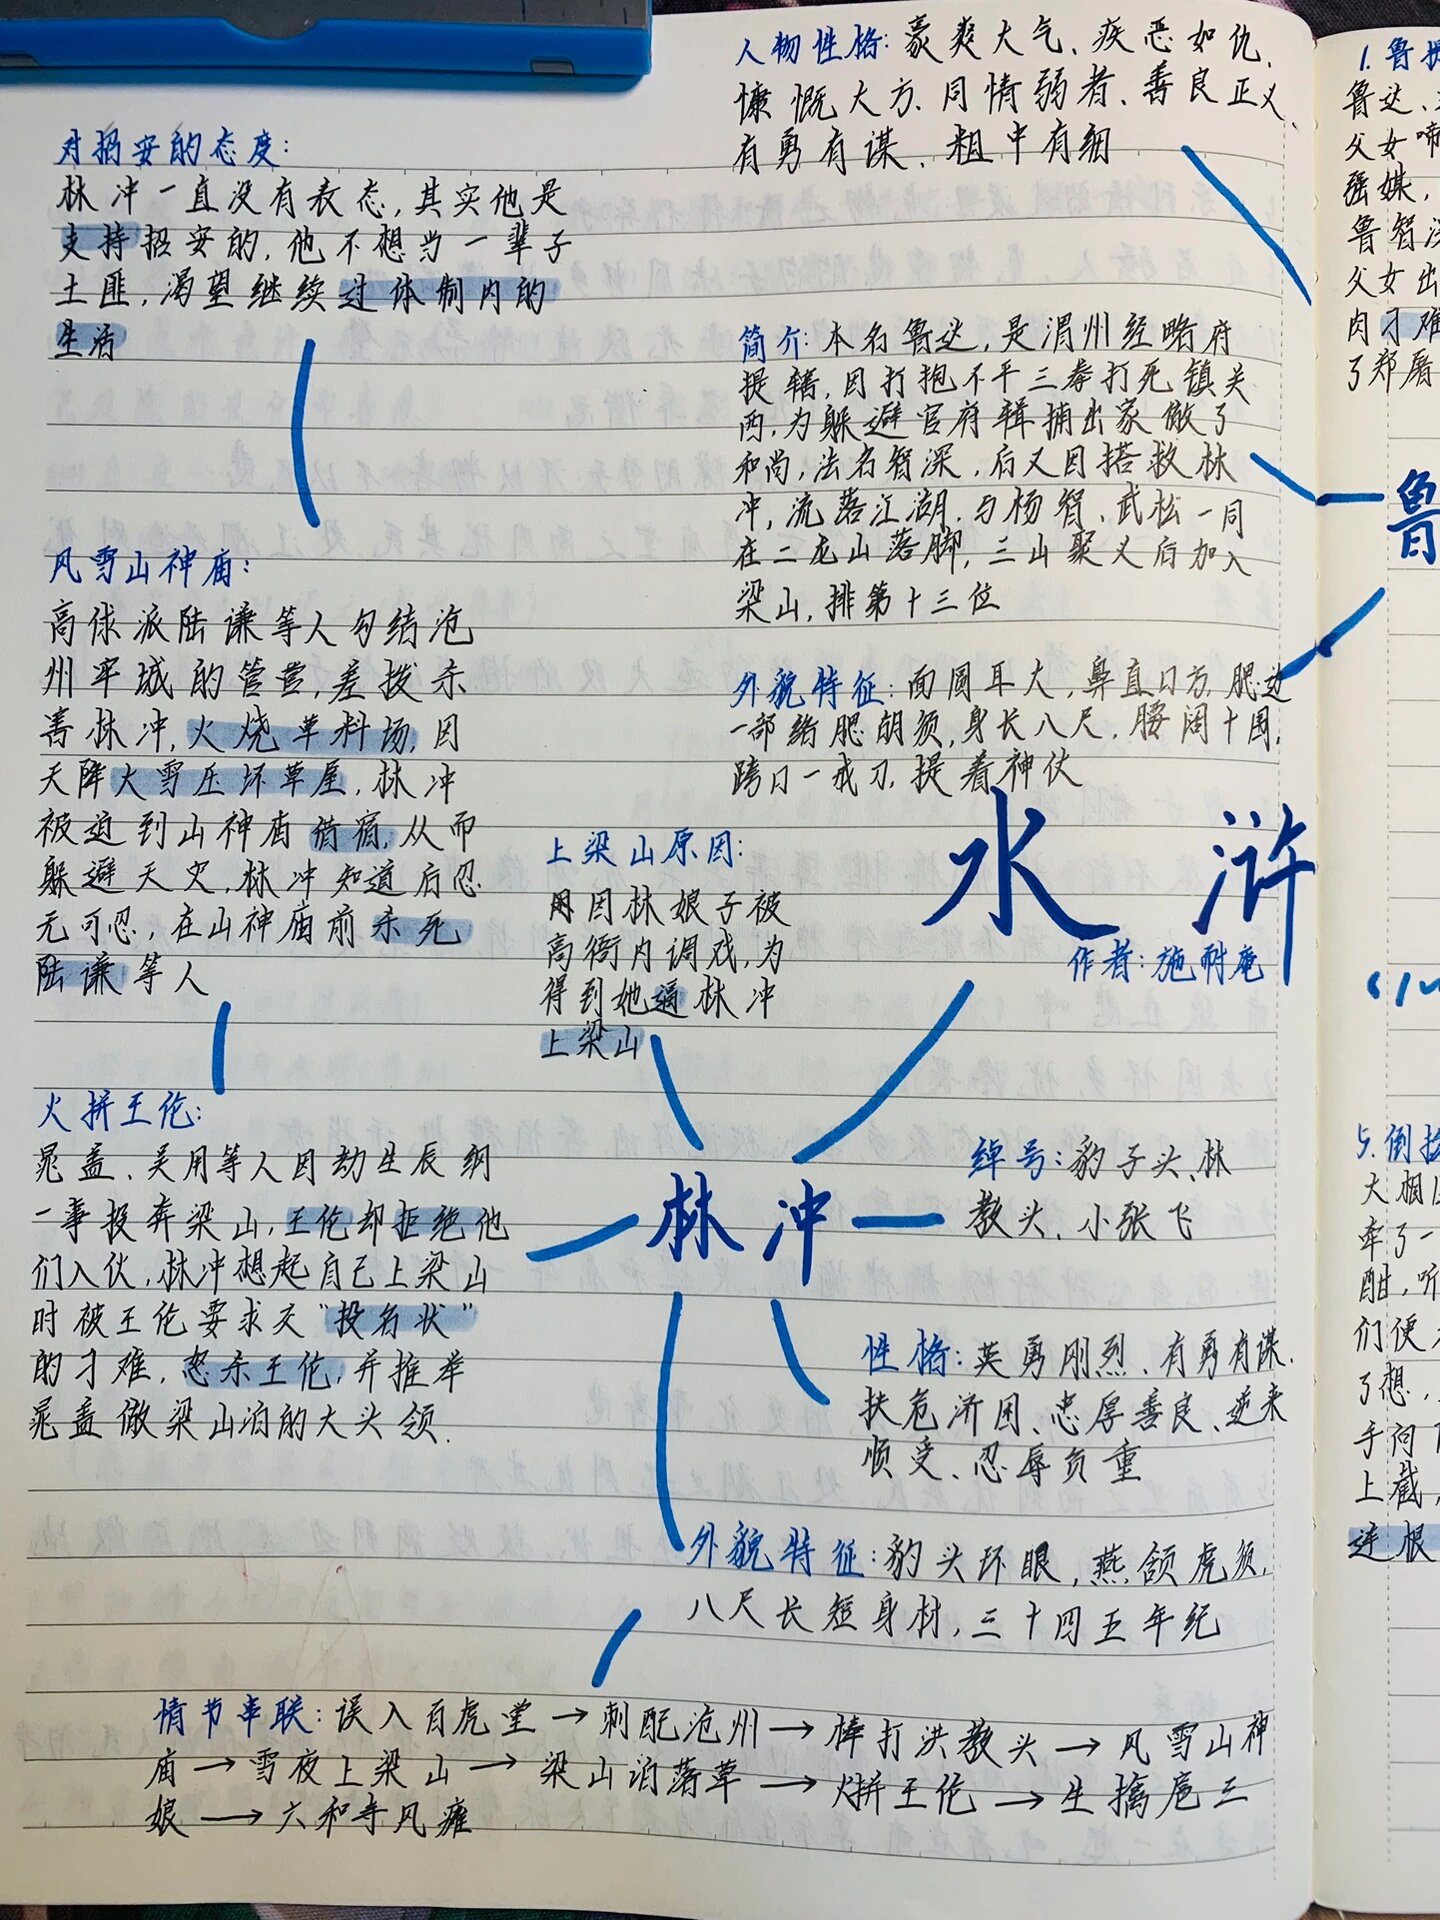 人物性格：豪爽大气、疾恶如仇、
慷慨大方、同情弱者、善良正义、
有勇有谋、粗中有细
对招安的态度：
林冲一直没有表态，其实他是
支持招安的，他不想当一辈子
土匪，渴望继续过体制内的
生活
简介：本名鲁达，是渭州经略府
提辖，因打抱不平三拳打死镇关
西，为躲避官府辑捕出家做了
和尚，法名智深，后又因搭救林
冲，流落江湖，与杨智、武松一同
在二龙山落脚，三山聚义后加入
梁山，排第十三位
外貌特征：面圆耳大，鼻直口方，腮边
一部络腮胡须，身长八尺，腰阔十围，
跨口一戒刀，提着神仗
风雪山神庙：
高俅派陆谦等人勾结沧
州牢城的管营，差拨杀
害林冲，火烧草料场，因
天降大雪压坏草屋，林冲
被迫到山神庙借宿，从而
躲避天灾，林冲知道后忍
无可忍，在山神庙前杀死
陆谦等人
上梁山原因：
因林娘子被
高衙内调戏，为
得到她逼林冲
上梁山
水浒
作者：施耐庵
火拼王伦：
晁盖、吴用等人因劫生辰纲
一事投奔梁山，王伦却拒绝他
们入伙，林冲想起自己上梁山
时被王伦要求交“投名状”
的刁难，怒杀王伦，并推举
晁盖做梁山泊的大头领．
林冲
绰号：豹子头、林
教头、小张飞
性格：英勇刚烈、有勇有谋、
扶危济困、忠厚善良、逆来
顺受、忍辱负重
外貌特征：豹头环眼，燕颌虎须，
八尺长短身材，三十四五年纪
情节串联：误入百虎堂→刺配沧州→棒打洪教头→风雪山神
庙→雪夜上梁山→梁山泊落草→火拼王伦→生擒扈三
娘→六和寺风瘫
1.鲁提
鲁达、
父女啼
强媒，
鲁智深
父女出
肉刁难
了郑屠
鲁
5.倒拔
大相国
牵了一
酣，听
们便
了想，
手问
上截，
连根